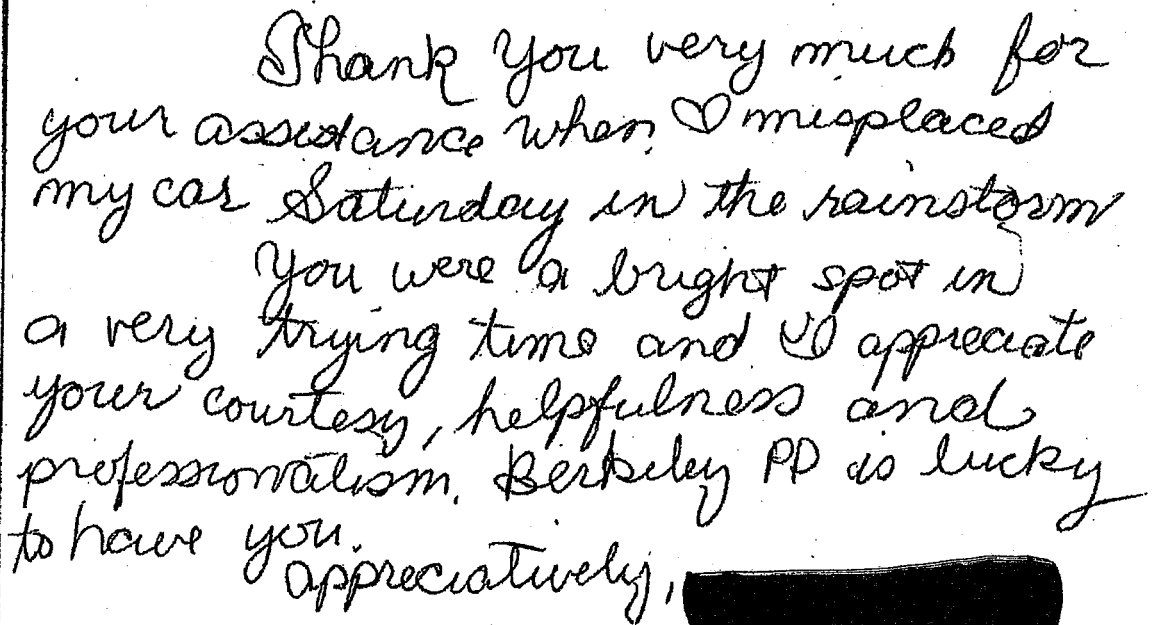 Thank you very much for
your assistance when I misplaced
my car Saturday in the rainstorm
You were a bright spot in
a very trying time and I appreciate
your courtesy, helpfulness and
professionalism. Berkeley PD is lucky
to have you.
appreciatively,